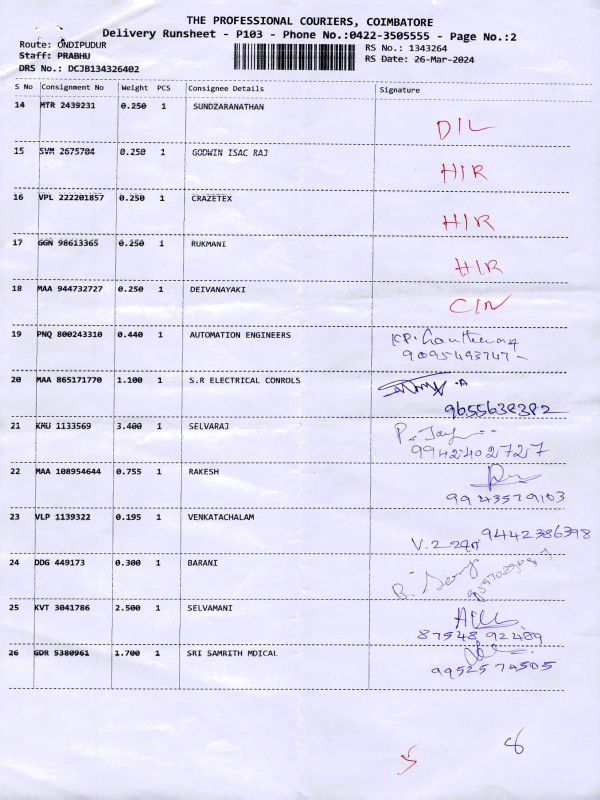 THE PROFESSIONAL COURIERS, COIMBATORE
Delivery Runsheet - P103 - Phone No.:0422-3505555 - Page No.:2
Route: ONDIPUDUR RS No.: 1343264
Staff: PRABHU RS Date: 26-Mar-2024
DRS No.: DCJB134326402
S No Consignment No Weight PCS Consignee Details Signature
14 MTR 2439231 0.250 1 SUNDZARANATHAN
DIL
15 SVM 2675704 0.250 1 GODWIN ISAC RAJ
HIR
16 VPL 222201857 0.250 1 CRAZETEX
HIR
17 GGN 98613365 0.250 1 RUKMANI
HIR
18 MAA 944732727 0.250 1 DEIVANAYAKI
CIN
19 PNQ 800243310 0.440 1 AUTOMATION ENGINEERS
9095493747
20 MAA 865171770 1.100 1 S.R ELECTRICAL CONROLS
9655638382
21 KMU 1133569 3.400 1 SELVARAJ
P. Jay
9942402727
22 MAA 108954644 0.755 1 RAKESH
9943579103
23 VLP 1139322 0.195 1 VENKATACHALAM
9442386398
24 DDG 449173 0.300 1 BARANI
25 KVT 3041786 2.500 1 SELVAMANI
87548 92409
26 GDR 5380961 1.700 1 SRI SAMRITH MDICAL
9952574505
5 8